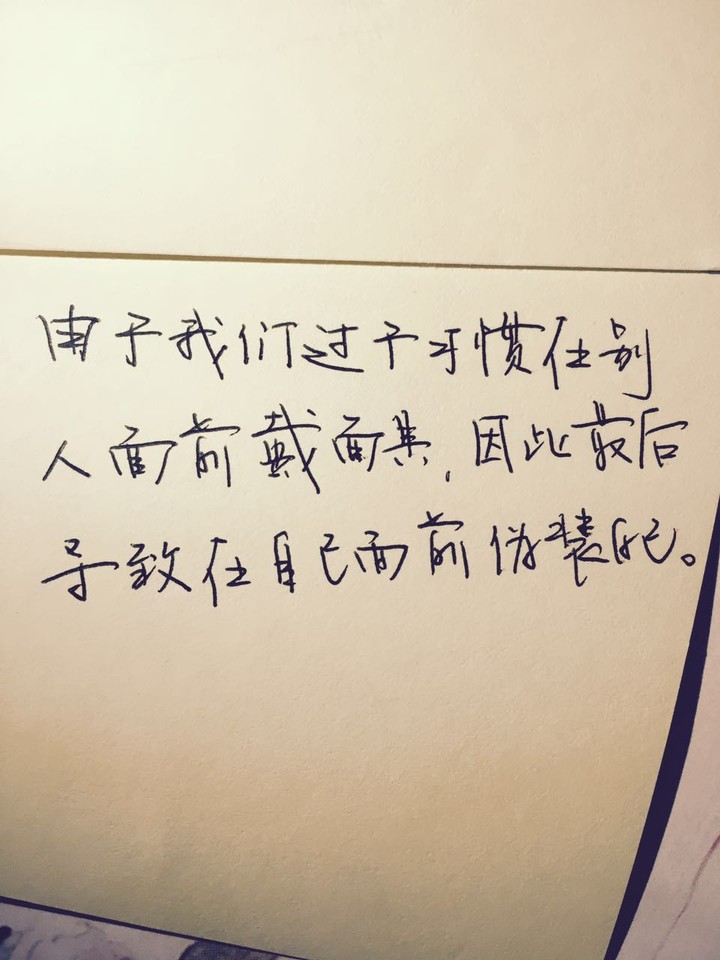 由于我们过于习惯在别
人面前戴面具，因此最后
导致在自己面前伪装自己。